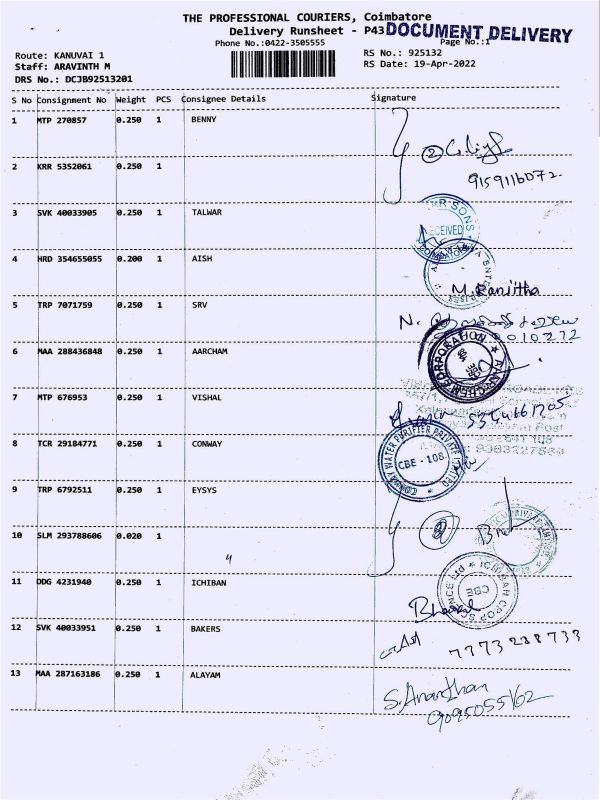 THE PROFESSIONAL COURIERS, Coimbatore
Delivery Runsheet - P43
DOCUMENT DELIVERY
Phone No.:0422-3505555
Page No.:1
Route: KANUVAI 1
RS No.: 925132
Staff: ARAVINTH M
RS Date: 19-Apr-2022
DRS No.: DCJB92513201
S No Consignment No Weight PCS Consignee Details Signature
1 MTP 270857 0.250 1 BENNY
2
9159116072
2 KRR 5352061 0.250 1
3 SVK 40033905 0.250 1 TALWAR
R SONS
RECEIVED
4 HRD 354655055 0.200 1 AISH
M. Ranjitha
5 TRP 7071759 0.250 1 SRV
6 MAA 288436848 0.250 1 AARCHAM
CORPORATION
7 MTP 676953 0.250 1 VISHAL
8 TCR 29184771 0.250 1 CONWAY
CONWAY WATER PURIFIER PRIVATE LIMITED
CBE - 108
9 TRP 6792511 0.250 1 EYSYS
10 SLM 293788606 0.020 1
4
11 DDG 4231940 0.250 1 ICHIBAN
ICHIBAN CROP SCIENCE Ltd
CBE
12 SVK 40033951 0.250 1 BAKERS
7773288733
13 MAA 287163186 0.250 1 ALAYAM
S. Ananthan
9095055162